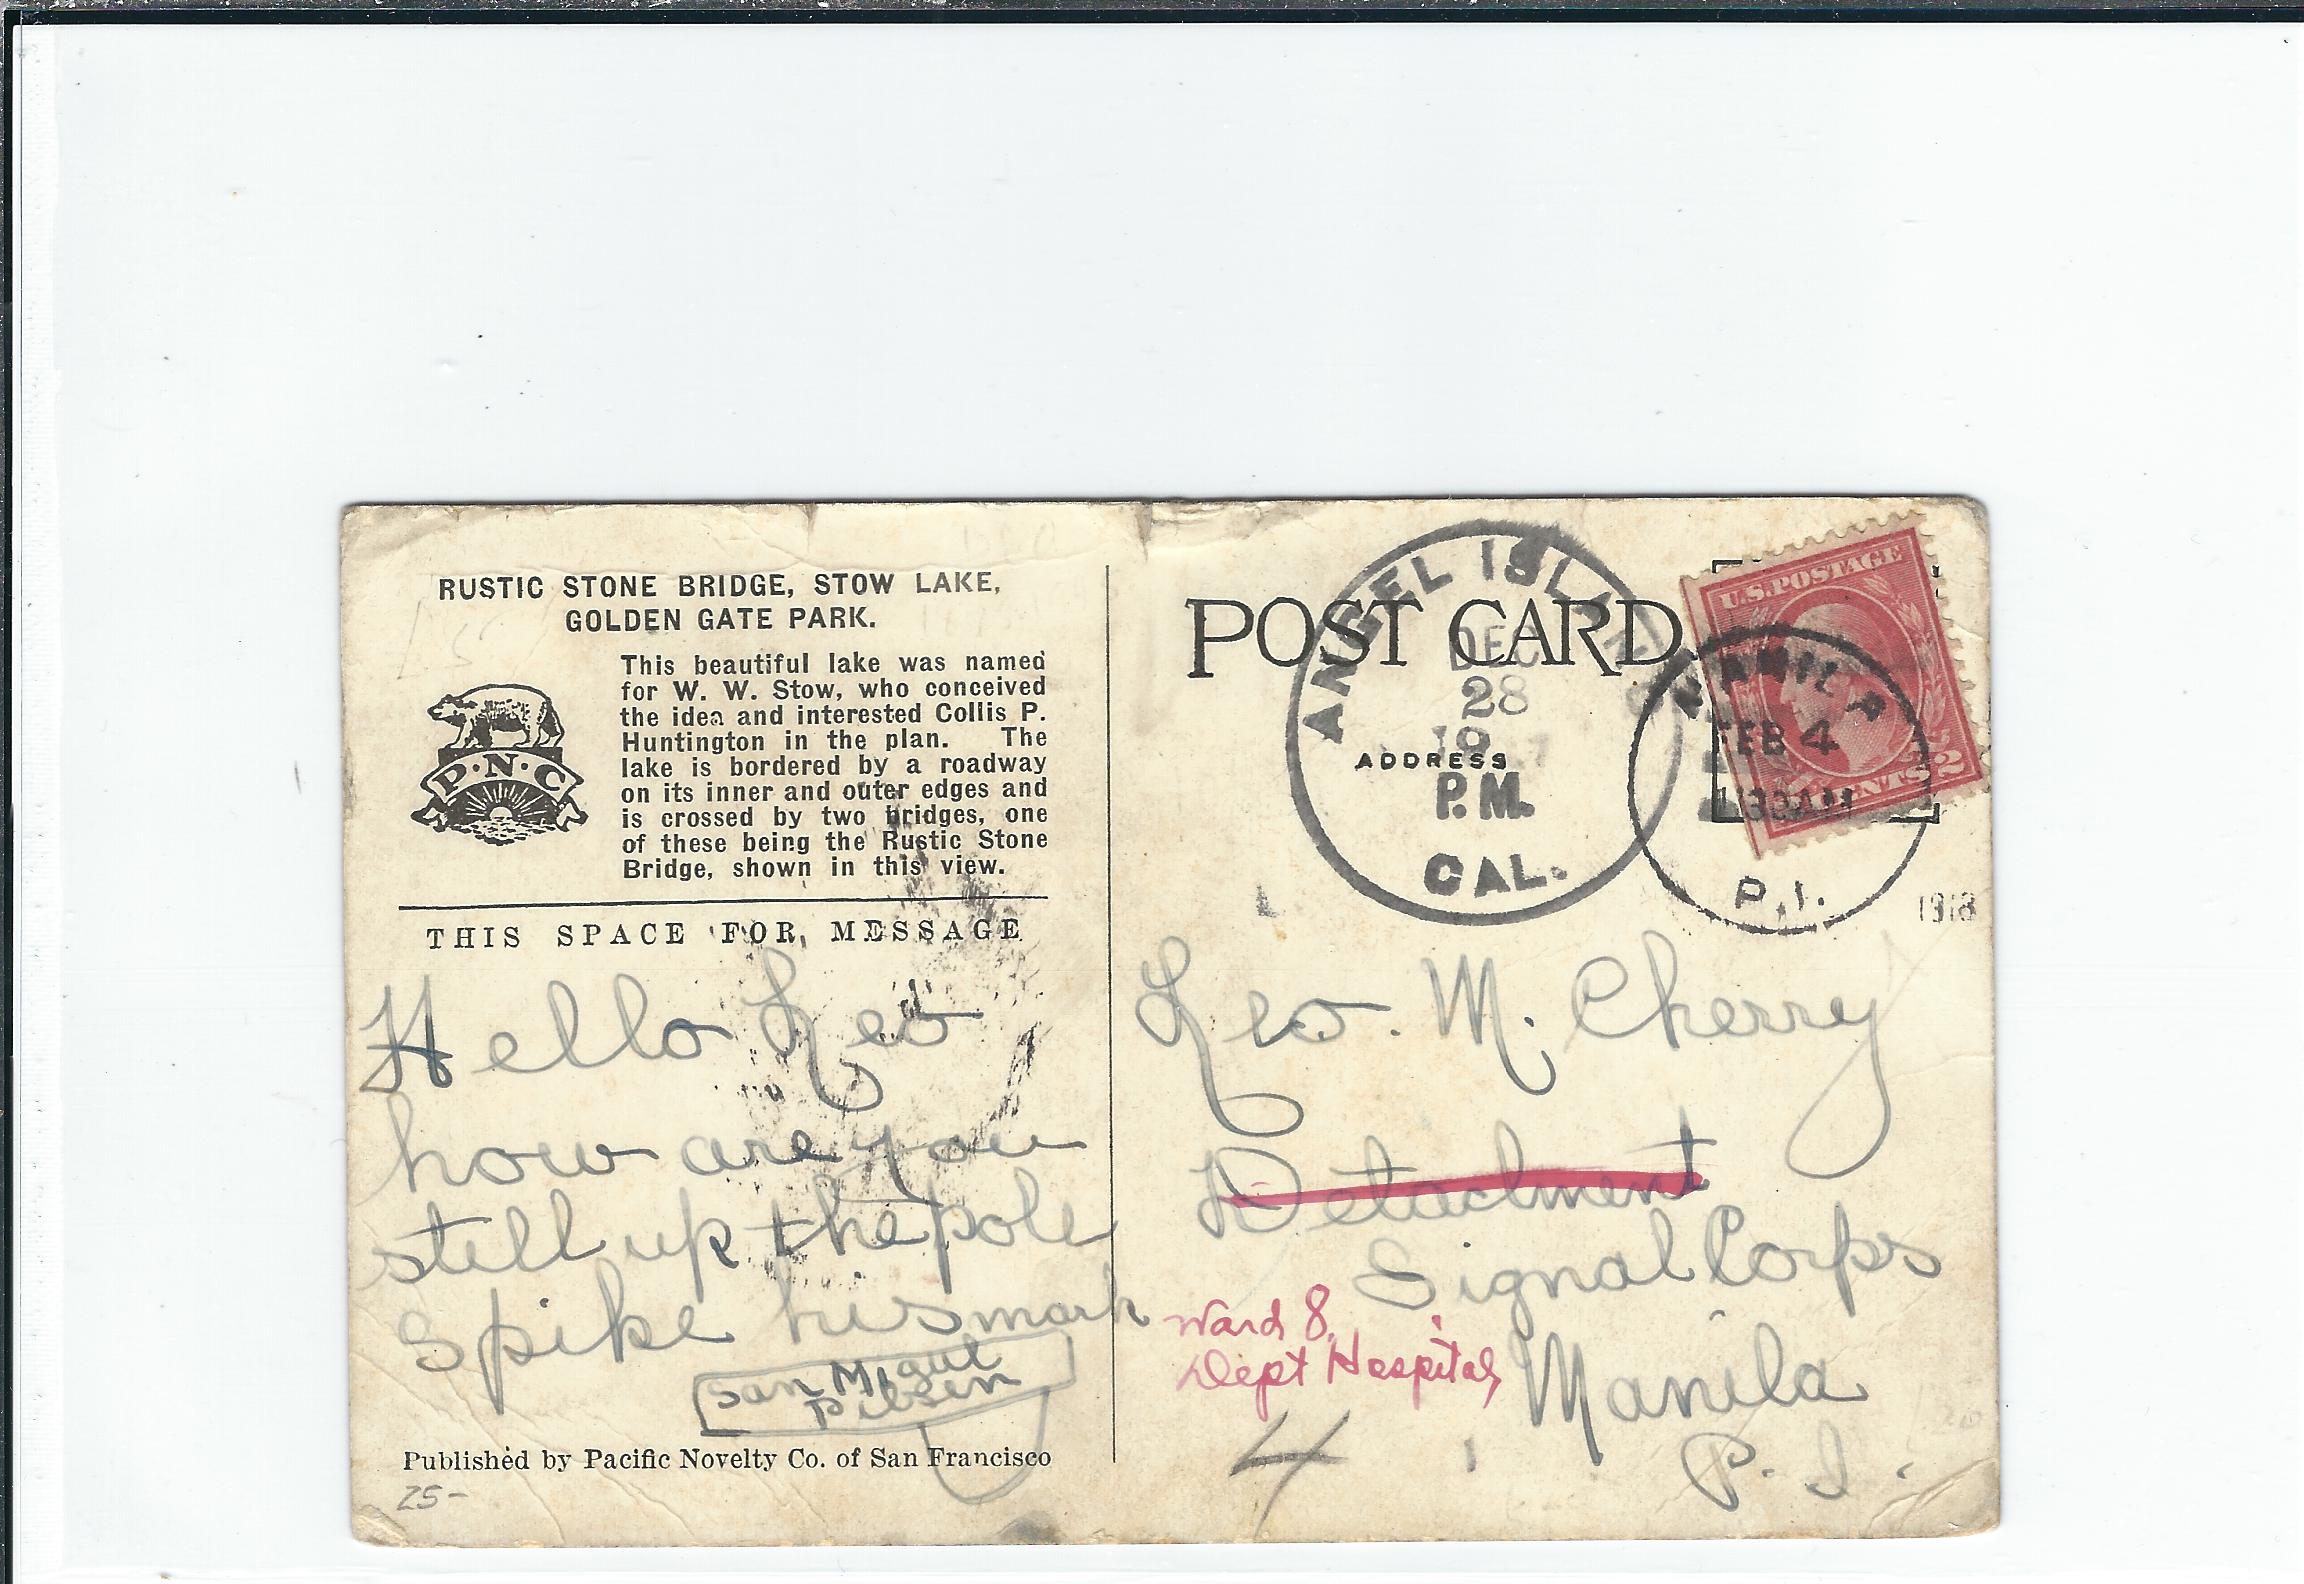 RUSTIC STONE BRIDGE, STOW LAKE,
GOLDEN GATE PARK.
This beautiful lake was named
for W. W. Stow, who conceived
the idea and interested Collis P.
Huntington in the plan. The
lake is bordered by a roadway
on its inner and outer edges and
is crossed by two bridges, one
of these being the Rustic Stone
Bridge, shown in this view.
P·N·C
THIS SPACE FOR MESSAGE
Hello Leo
how are you
still up the pole
Spike his mark
San Migul
Pilsen
Published by Pacific Novelty Co. of San Francisco
25-
POST CARD
ADDRESS
ANGEL ISLAND
DEC
28
1917
P.M.
CAL.
U.S. POSTAGE
2 CENTS 2
MANILA
FEB 4
30AM
P.I.
1918
Leo. M. Cherry
Detachment
Signal Corps
Ward 8,
Dept Hospital,
Manila
P. I.
4